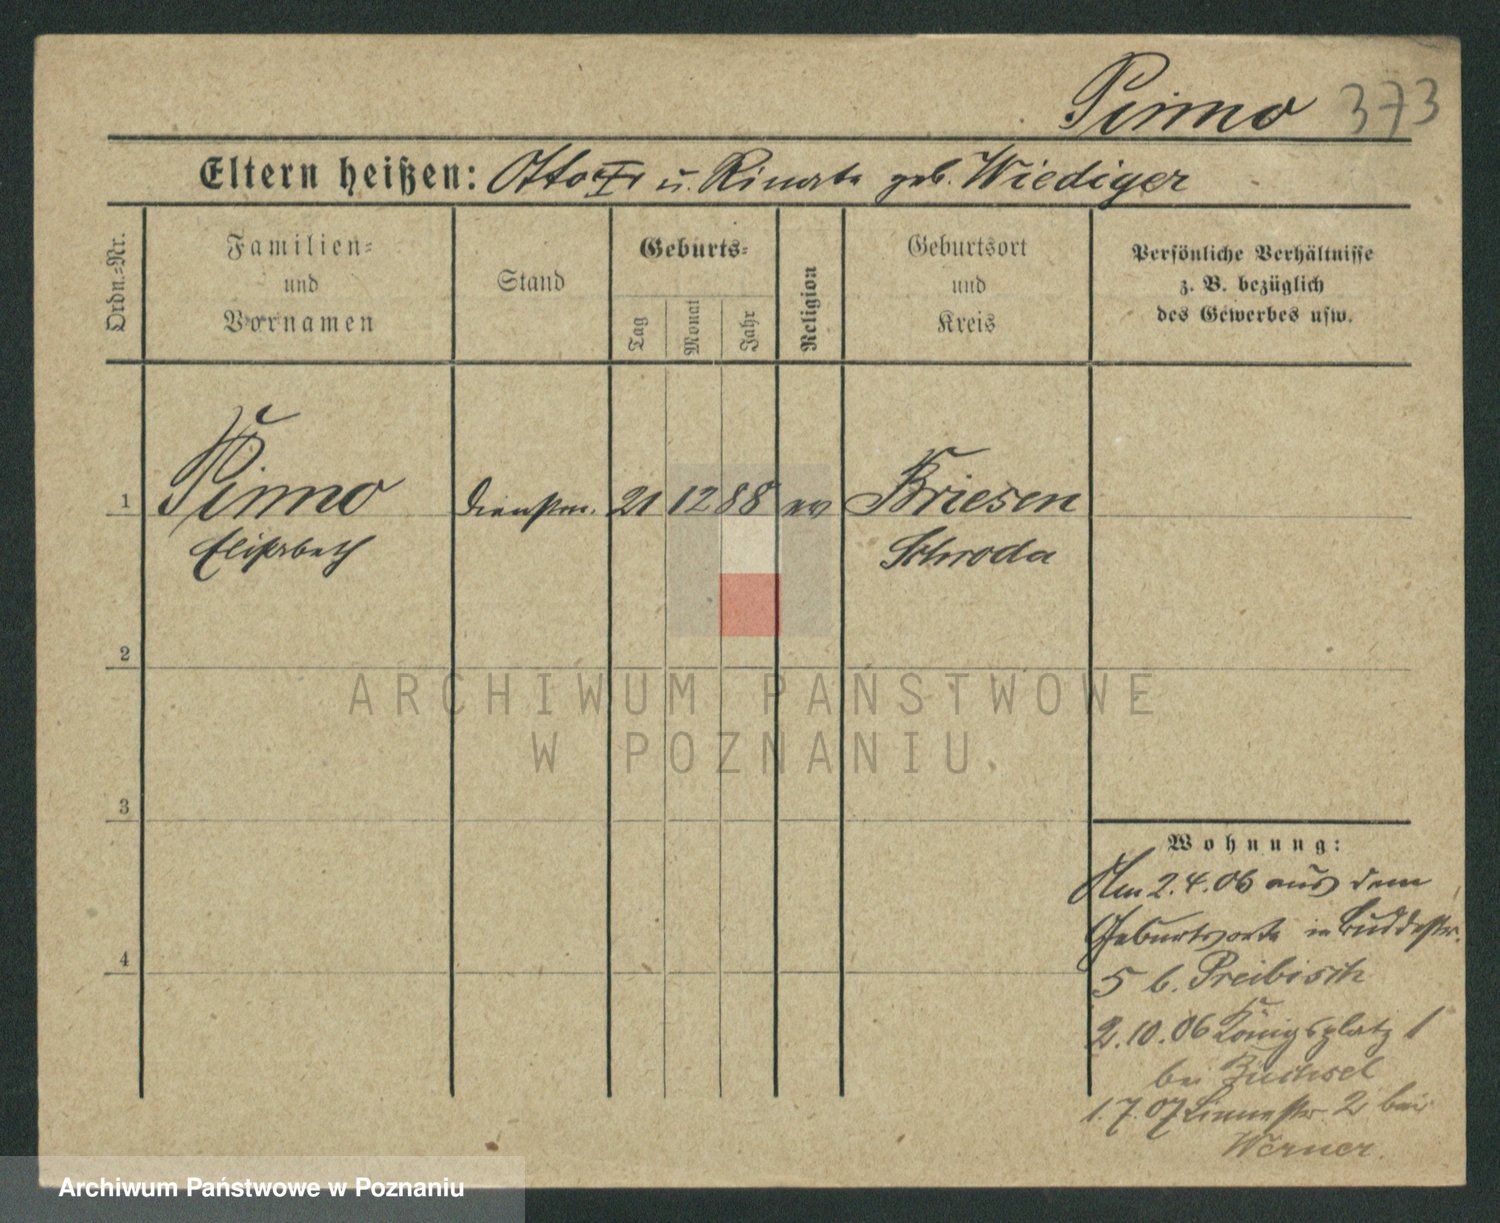 Pimno 373
Eltern heißen: Otto u. Rinata geb. Wiediger
Ordn.=Nr.
Familien=
und
Vornamen
Stand
Geburts=
Tag
Monat
Jahr
Religion
Geburtsort
und
Kreis
Persönliche Verhältnisse
z. B. bezüglich
des Gewerbes usw.
1 Pimno Dienstm. 21 12 88 ev Briesen
Elisabeth Schroda
2
ARCHIWUM PAŃSTWOWE
W POZNANIU
3
Wohnung:
Am 2.4.06 aus dem
Geburtsorte in Buddestr.
4
5 b. Preibisch
2.10.06 Königsplatz 1
bei
1.7.07 2 bei
Werner.
Archiwum Państwowe w Poznaniu